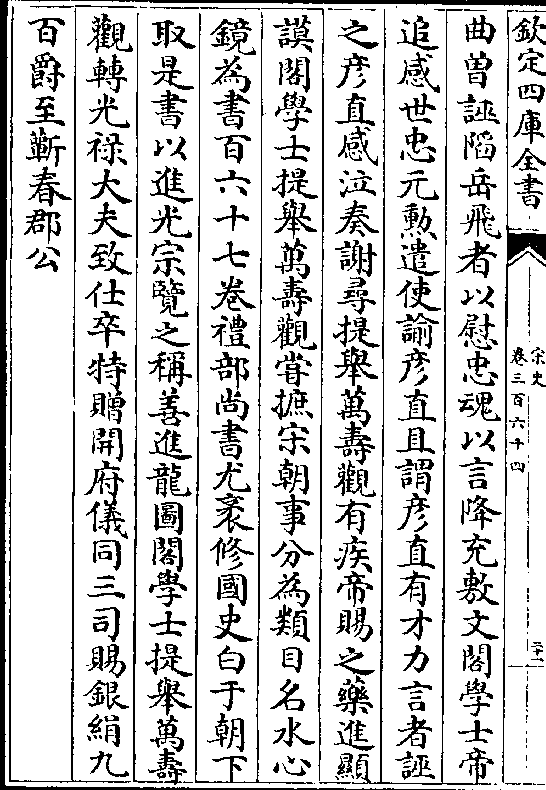 欽定四庫全書
宋史
卷三百六十四
二十一
曲曽誣䧟岳飛者以慰忠魂以言降充敷文閣學士帝
追感世忠元勲遣使諭彦直且謂彦直有才力言者誣
之彦直感泣奏謝尋提舉萬壽觀有疾帝賜之藥進顯
謨閣學士提舉萬壽觀嘗摭宋朝事分為類目名水心
鏡為書百六十七卷禮部尚書尤袤修國史白于朝下
取是書以進光宗覽之稱善進龍圖閣學士提舉萬壽
觀轉光禄大夫致仕卒特贈開府儀同三司賜銀絹九
百爵至蘄春郡公